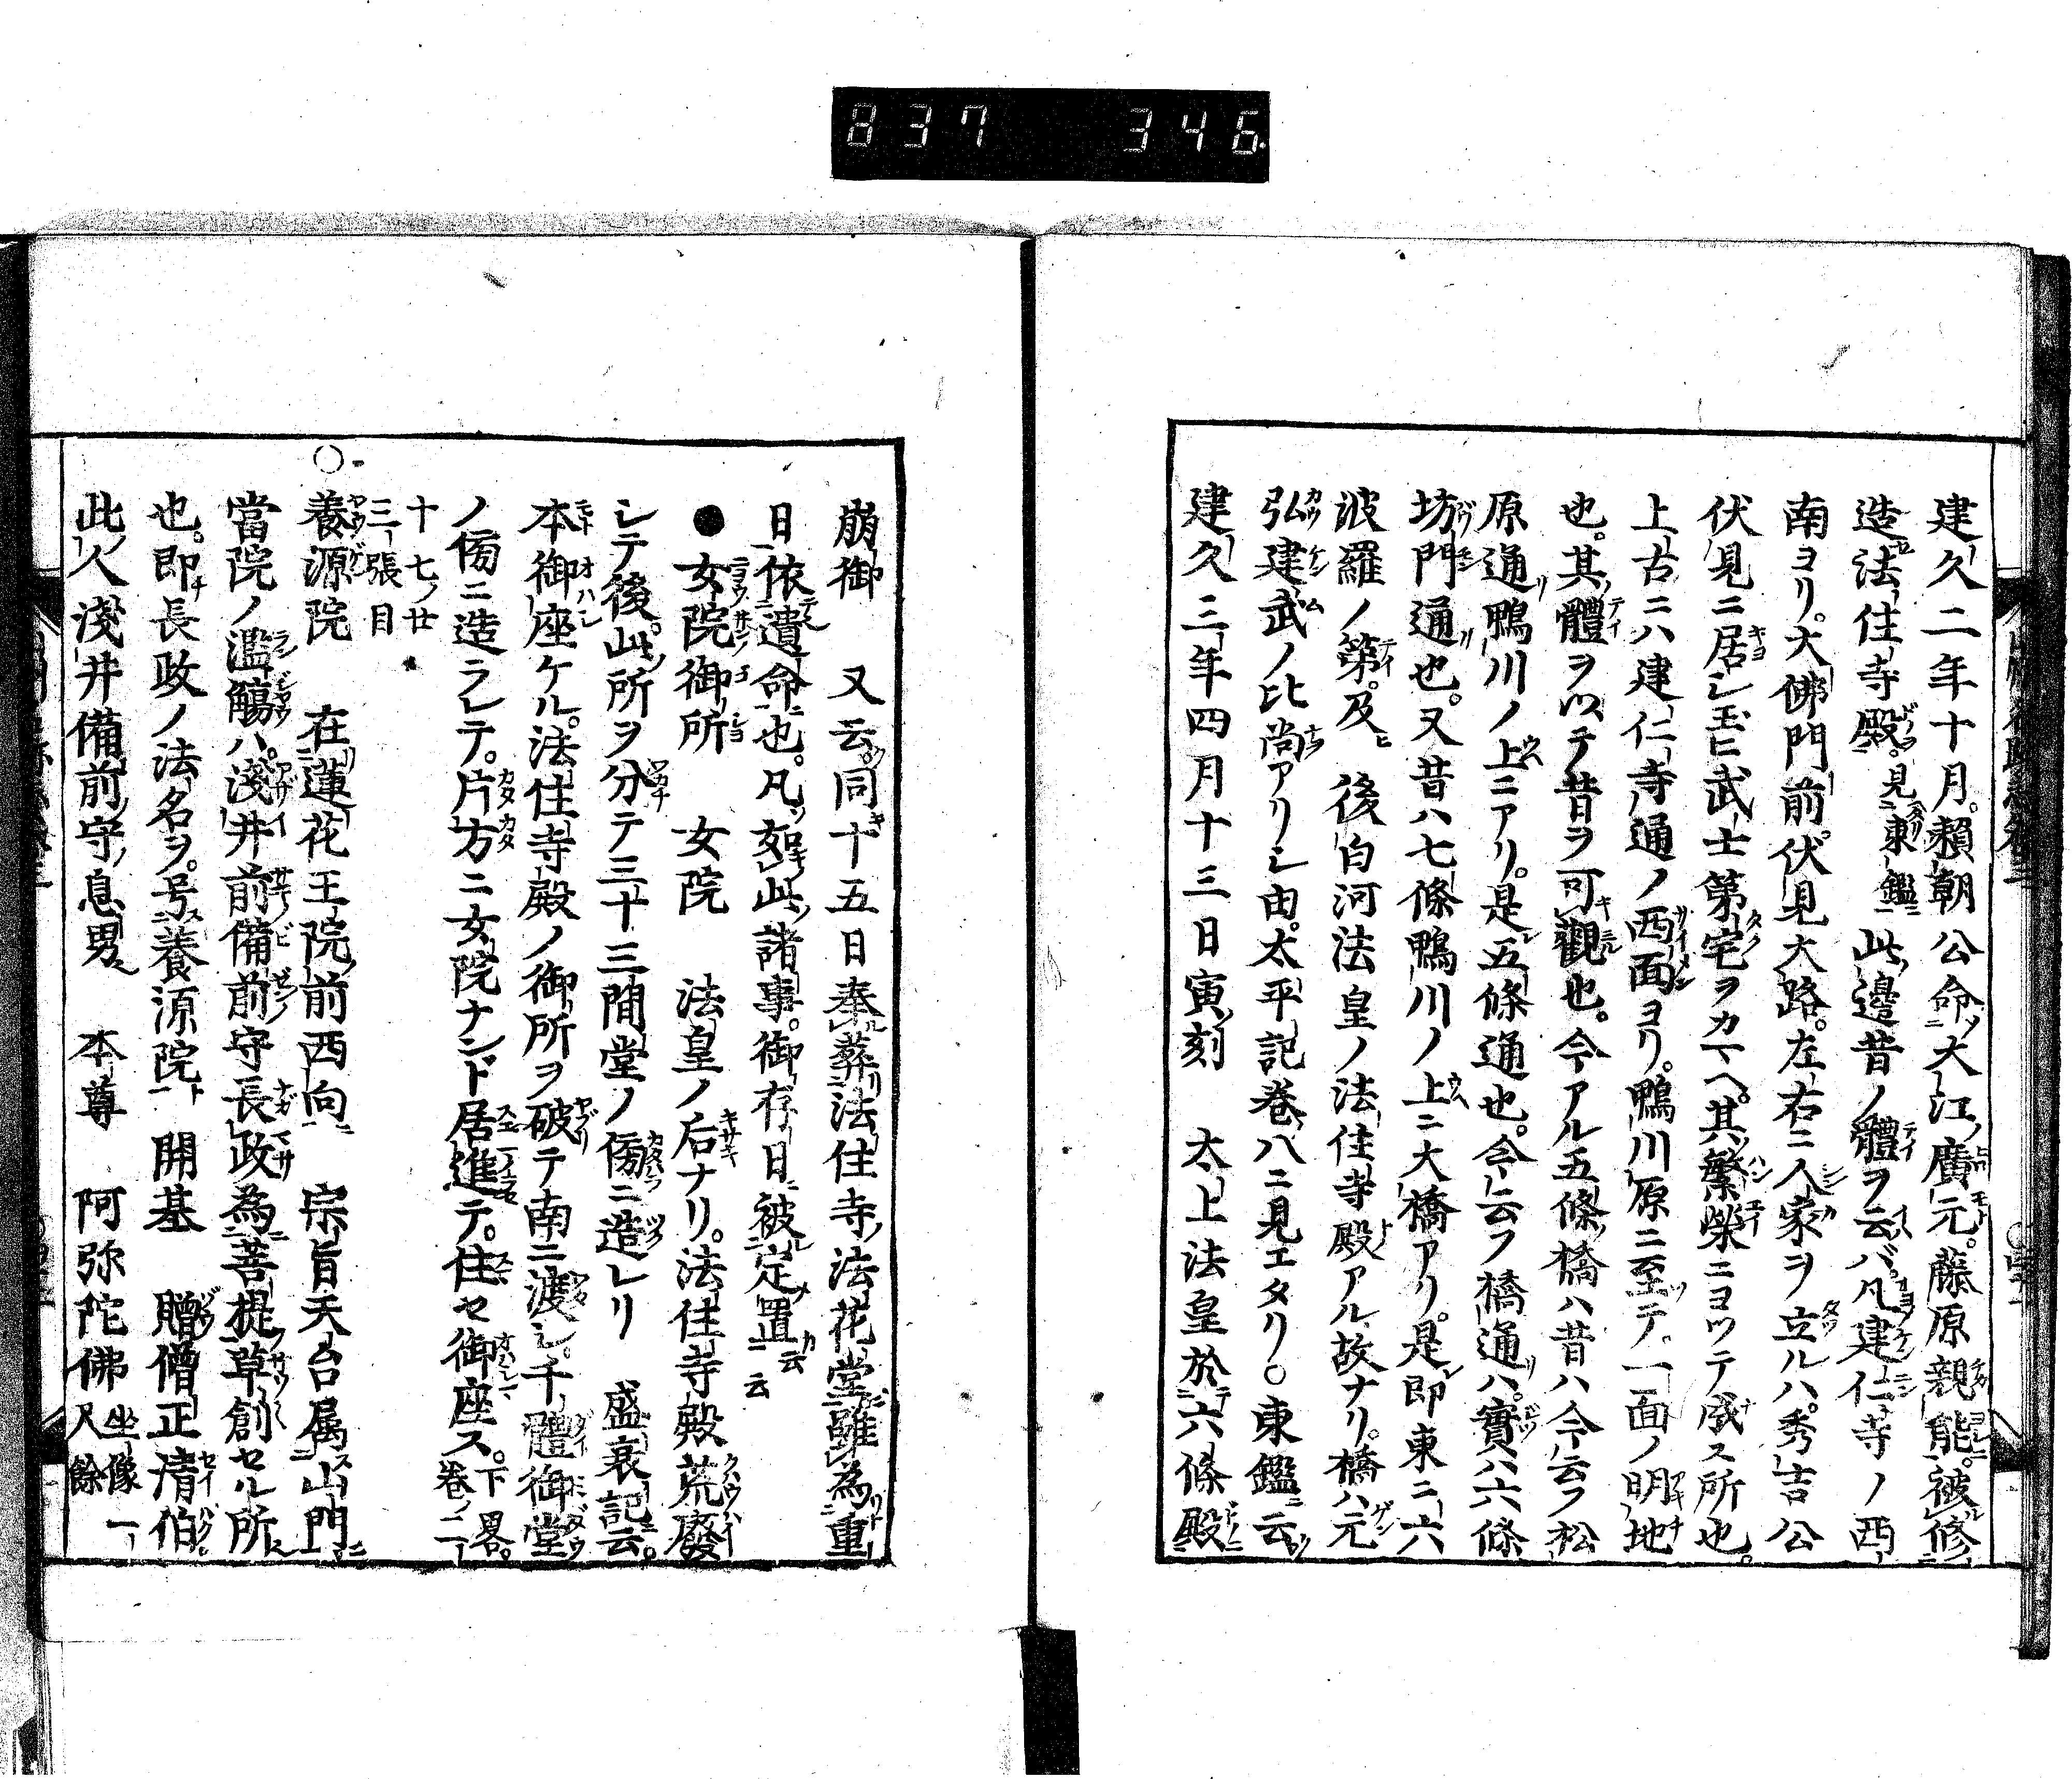 837 346
建久二年十月。賴朝公命大江廣元。藤原親能。被修
造法住寺殿。見東鑑 此邊昔ノ體ヲ云バ。凡建仁寺ノ西
南ヨリ。大佛門前。伏見大路。左右ニ人家ヲ立ルハ。秀吉公
伏見ニ居シ玉ヒ武士第宅ヲカマヘ。其繁榮ニヨツテ成ス所也。
上古ニハ建仁寺通ノ西面ヨリ。鴨川原ニ至テ。一面ノ明地
也。其體ヲ以テ昔ヲ可觀也。今アル五條橋ハ昔ハ今云フ松
原通鴨川ノ上ニアリ。是五條通也。今云フ橋通ハ。實ハ六條
坊門通也。又昔ハ七條鴨川ノ上ニ大橋アリ。是即東ニ六
波羅ノ第。及 後白河法皇ノ法住寺殿アル故ナリ。橋ハ元
弘建武ノ比尚アリシ由。太平記巻八ニ見エタリ。○東鑑云
建久三年四月十三日寅刻 太上法皇於六條殿
崩御 又云。同十五日奉葬法住寺法花堂雖為重
日依遺命也。凡如此諸事。御存日被定置云云
●女院御所 女院 法皇ノ后ナリ。法住寺殿荒廢
シテ後。此所ヲ分テ三十三間堂ノ傍ニ造レリ 盛衰記云。
本御座ケル。法住寺殿ノ御所ヲ破テ南ニ渡シ。千體御堂
ノ傍ニ造ラレテ。片方ニ女院ナンド居進テ。住セ御座ス。下畧。巻ノ二
十七ノ廿三張目
○養源院 在蓮花王院前西向 宗旨天台属山門
當院ノ濫觴ハ。淺井前備前守長政為菩提草創セル所
也。即長政ノ法名ヲ。号養源院 開基 贈僧正清伯
此人淺井備前守息男 本尊 阿弥陀佛 坐像一尺餘